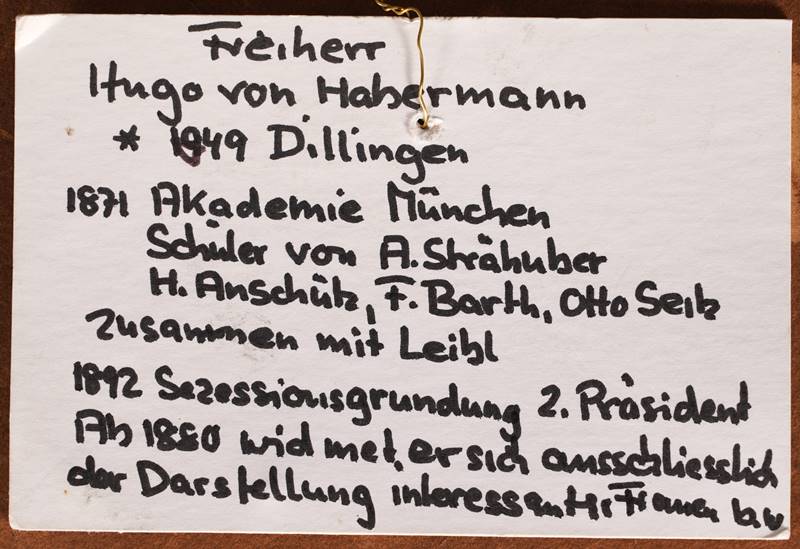 Freiherr
Hugo von Habermann
* 1949 Dillingen
1871 Akademie München
Schüler von A. Strähuber
H. Anschütz, F. Barth, Otto Seitz
Zusammen mit Leibl
1892 Sezessionsgrundung 2. Präsident
Ab 1880 widmet er sich ausschliesslich
der Darstellung interessanter Frauen